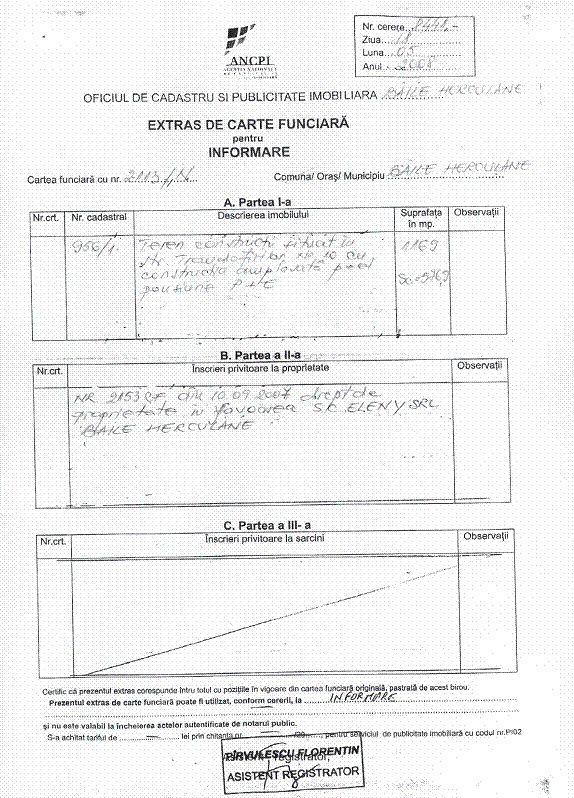 ANCPI
Nr. cerere
Ziua 18
Luna 05
Anul 2008
OFICIUL DE CADASTRU SI PUBLICITATE IMOBILIARA BAILE HERCULANE
EXTRAS DE CARTE FUNCIARĂ
pentru
INFORMARE
Cartea funciară cu nr. 2113/N
Comuna/ Oraş/ Municipiu BĂILE HERCULANE
A. Partea I-a
Nr.crt. Nr. cadastral Descrierea imobilului Suprafaţa în mp. Observaţii
956/1. Teren construcţii situat în 1169
str. Trandafirilor nr. 10 cu
construcţia amplasată pe el Sc=576,9
pensiune P+E
B. Partea a II-a
Nr.crt. Înscrieri privitoare la proprietate Observaţii
NR 2153 CF din 10.09.2007 drept de
proprietate în favoarea SC ELENY SRL
BAILE HERCULANE
C. Partea a III- a
Nr.crt. Înscrieri privitoare la sarcini Observaţii
Certific că prezentul extras corespunde întru totul cu poziţiile în vigoare din cartea funciară originală, pastrată de acest birou.
Prezentul extras de carte funciară poate fi utilizat, conform cererii, la INFORMARE
şi nu este valabil la încheierea actelor autentificate de notarul public.
S-a achitat tariful de lei prin chitanta nr. /20 , pentru serviciul de publicitate imobiliară cu codul nr.
Asistent registrator,
PÎRVULESCU FLORENTIN
ASISTENT REGISTRATOR